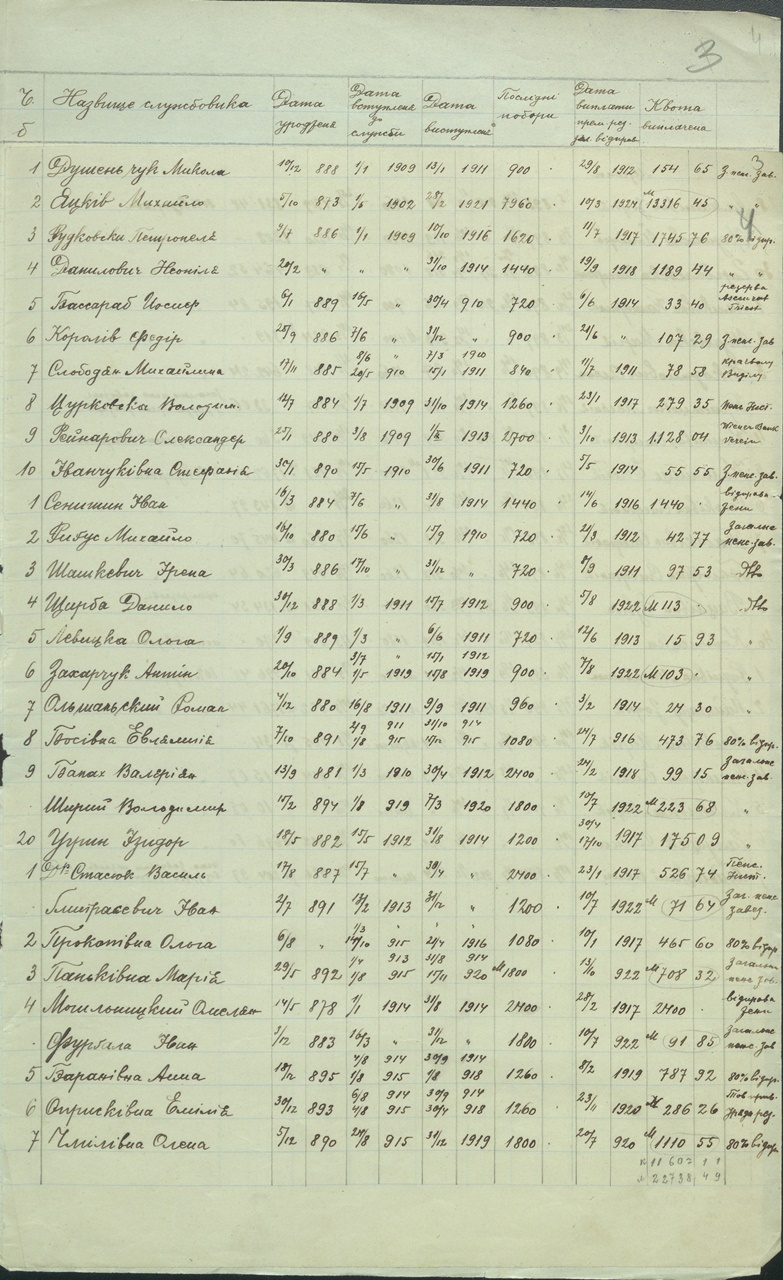 3
Ч. б Назвище службовика Дата уродження Дата вступлення до служби Дата виступлення Послідні побори Дата виплати прем. рез. зл. відправ. Квота виплачена
1 Душеньчук Микола 10/12 888 1/1 1909 13/1 1911 900 · 29/8 1912 154 65 З пенс. Зав.
2 Яцків Михайло 5/10 873 1/5 1902 28/2 1921 7960 · 10/3 1924 М 13316 45 "
3 Рудковски Петронеля 9/7 886 1/1 1909 10/10 1916 1620 · 11/7 1917 1745 76 80% відпр.
4 Данилович Неоніля 20/2 " " " 31/10 1914 1440 · 19/9 1918 1189 44 " "
5 Бассараб Йосиф 6/1 889 16/5 " 30/4 910 720 · 6/6 1914 33 40 резерва
6 Королів Федір 28/9 886 7/6 " 31/12 " 900 · 21/6 " 107 29 З пенс. зав
7 Слободян Михайлина 17/11 885 8/6 " 20/5 910 7/3 1910 15/1 1911 840 · 11/7 1911 78 58 Краєвому Виділу
8 Цурковска Володим. 14/7 884 1/7 1909 31/10 1914 1260 · 23/1 1917 279 35 Пенс. Инст.
9 Рейнарович Олександер 25/1 880 3/8 1909 1/II 1913 2700 · 3/10 1913 1.128 04 Wiener Bank Verein
10 Іванчуківна Стефанія 30/1 890 15/5 1910 30/6 1911 720 · 5/5 1914 55 55 З пенс. зав.
1 Сенишин Іван 16/3 884 7/6 " 3/8 1914 1440 · 14/6 1916 1440 ·
2 Ригус Михайло 16/10 880 15/6 " 15/9 1910 720 · 21/3 1912 42 77 Загально пенс. зав.
3 Шашкевич Ірена 30/3 886 17/10 " 31/12 " 720 · 8/9 1911 97 53 дто
4 Щирба Данило 30/12 888 1/3 1911 15/7 1912 900 · 5/8 1922 М 113 · дто
5 Левицка Ольга 1/9 889 1/3 " 6/6 1911 720 · 12/6 1913 15 93 "
6 Захарчук Антін 20/10 884 3/7 " 1/5 1919 15/1 1912 15/8 1919 900 · 7/8 1922 М 103 · "
7 Ольшаньский Роман 4/12 880 16/8 1911 9/9 1911 960 · 3/2 1914 24 30 "
8 Босівна Евгелинія 7/10 891 21/9 911 1/8 915 31/10 914 17/12 915 1080 · 24/7 916 473 76 80% відпр.
9 Бапах Валєріян 13/9 881 1/3 1910 30/4 1912 2400 · 24/2 1918 99 15 Загальне пенс. зав.
· Ширий Володимир 15/2 894 1/8 919 7/3 1920 1800 · 10/7 1922 М 223 68 "
20 Угрин Ізидор 18/5 882 15/5 1912 31/8 1914 1200 · 30/4 17/10 1917 175 09 "
1 Др. Стасюк Василь 17/8 887 15/7 " 30/4 " 2400 · 23/1 1917 526 74 Пенс. Инст.
· Дмитрасевич Іван 2/7 891 12/2 1913 31/12 " 1200 · 10/7 1922 М 71 64 Заг. пенс. завед.
2 Прокопівна Ольга 6/8 " 1/3 " 14/10 915 " " 21/4 1916 1080 · 10/1 1917 465 60 80% відпр
3 Паньківна Марія 29/5 892 1/4 913 1/8 915 31/8 914 15/11 920 М 1800 13/10 922 М 708 32 загально пенс зав
4 Могильницкий Омелян 14/5 878 1/1 1914 31/8 1914 2400 · 28/2 1917 2400 ·
· Фуртала Іван 3/12 883 16/3 " 31/12 " 1800 · 10/7 922 М 91 85 загальне пенс. зав
5 Баранівна Анна 18/12 895 4/8 914 1/8 915 30/9 1914 1/8 918 1260 · 8/2 1919 787 92 80% відпр
6 Оприсківна Емілія 30/12 893 6/8 914 4/8 915 30/9 914 30/4 918 1260 · 23/11 1920 М 286 26
7 Чмілівна Олена 5/12 890 24/8 915 31/12 1919 1800 · 20/7 920 М 1110 55 80% відпр
К 11 607 11
М 22738 49